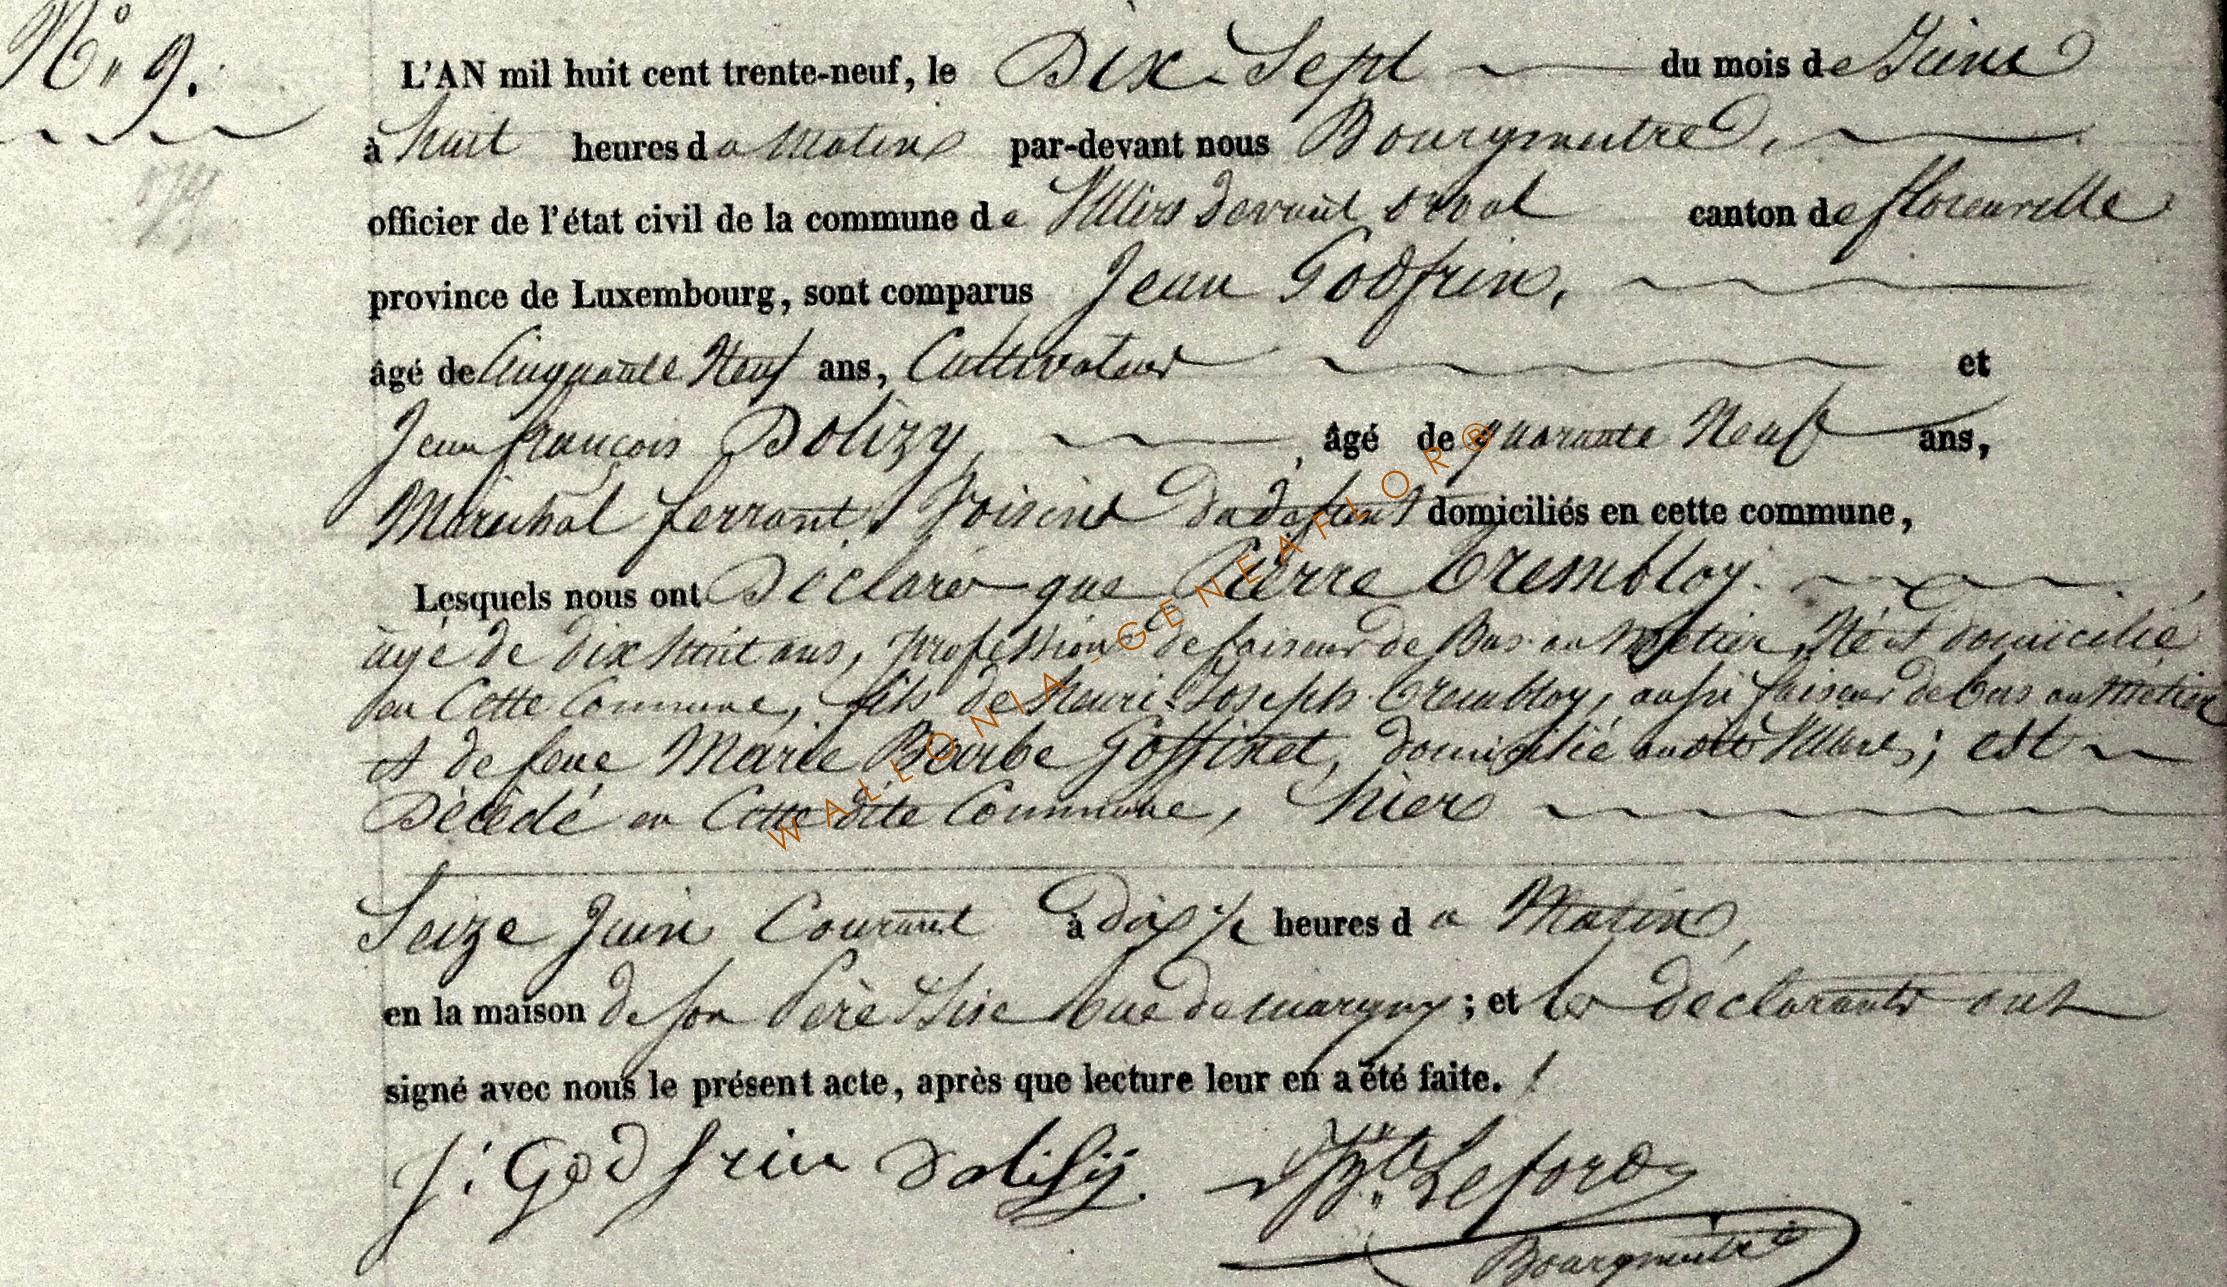 N.° 9.
L'AN mil huit cent trente-neuf, le Dix-Sept du mois de Juin
à huit heures du Matin par-devant nous Bourgmestre,
officier de l'état civil de la commune de Villers devant orval canton de florenville
province de Luxembourg, sont comparus Jean Godfrin,
âgé de Cinquante Neuf ans, Cultivateur et
Jean françois Dolizy, âgé de quarante Neuf ans,
Maréchal ferrant, Voisins du défunt domiciliés en cette commune,
Lesquels nous ont Déclaré que Pierre Trembloy.
agé de dix huit ans, profession de faiseur de Bas au Métier, Né et domicilié
en Cette Commune, fils de henri-Joseph Trembloy, aussi faiseur de bas au Métier
et de feue Marie Barbe Goffinet, domicilié audit Villers; est
Décédé en Cette dite Commune, hier
Seize Juin Courant à dix 1/2 heures du Matin,
en la maison de son Père Sise Rue de margny; et les déclarants ont
signé avec nous le présent acte, après que lecture leur en a été faite.
J: Godfrin Dolisÿ JBte Leford
Bourgmestre
WALLONIA-GENEAFLOR®